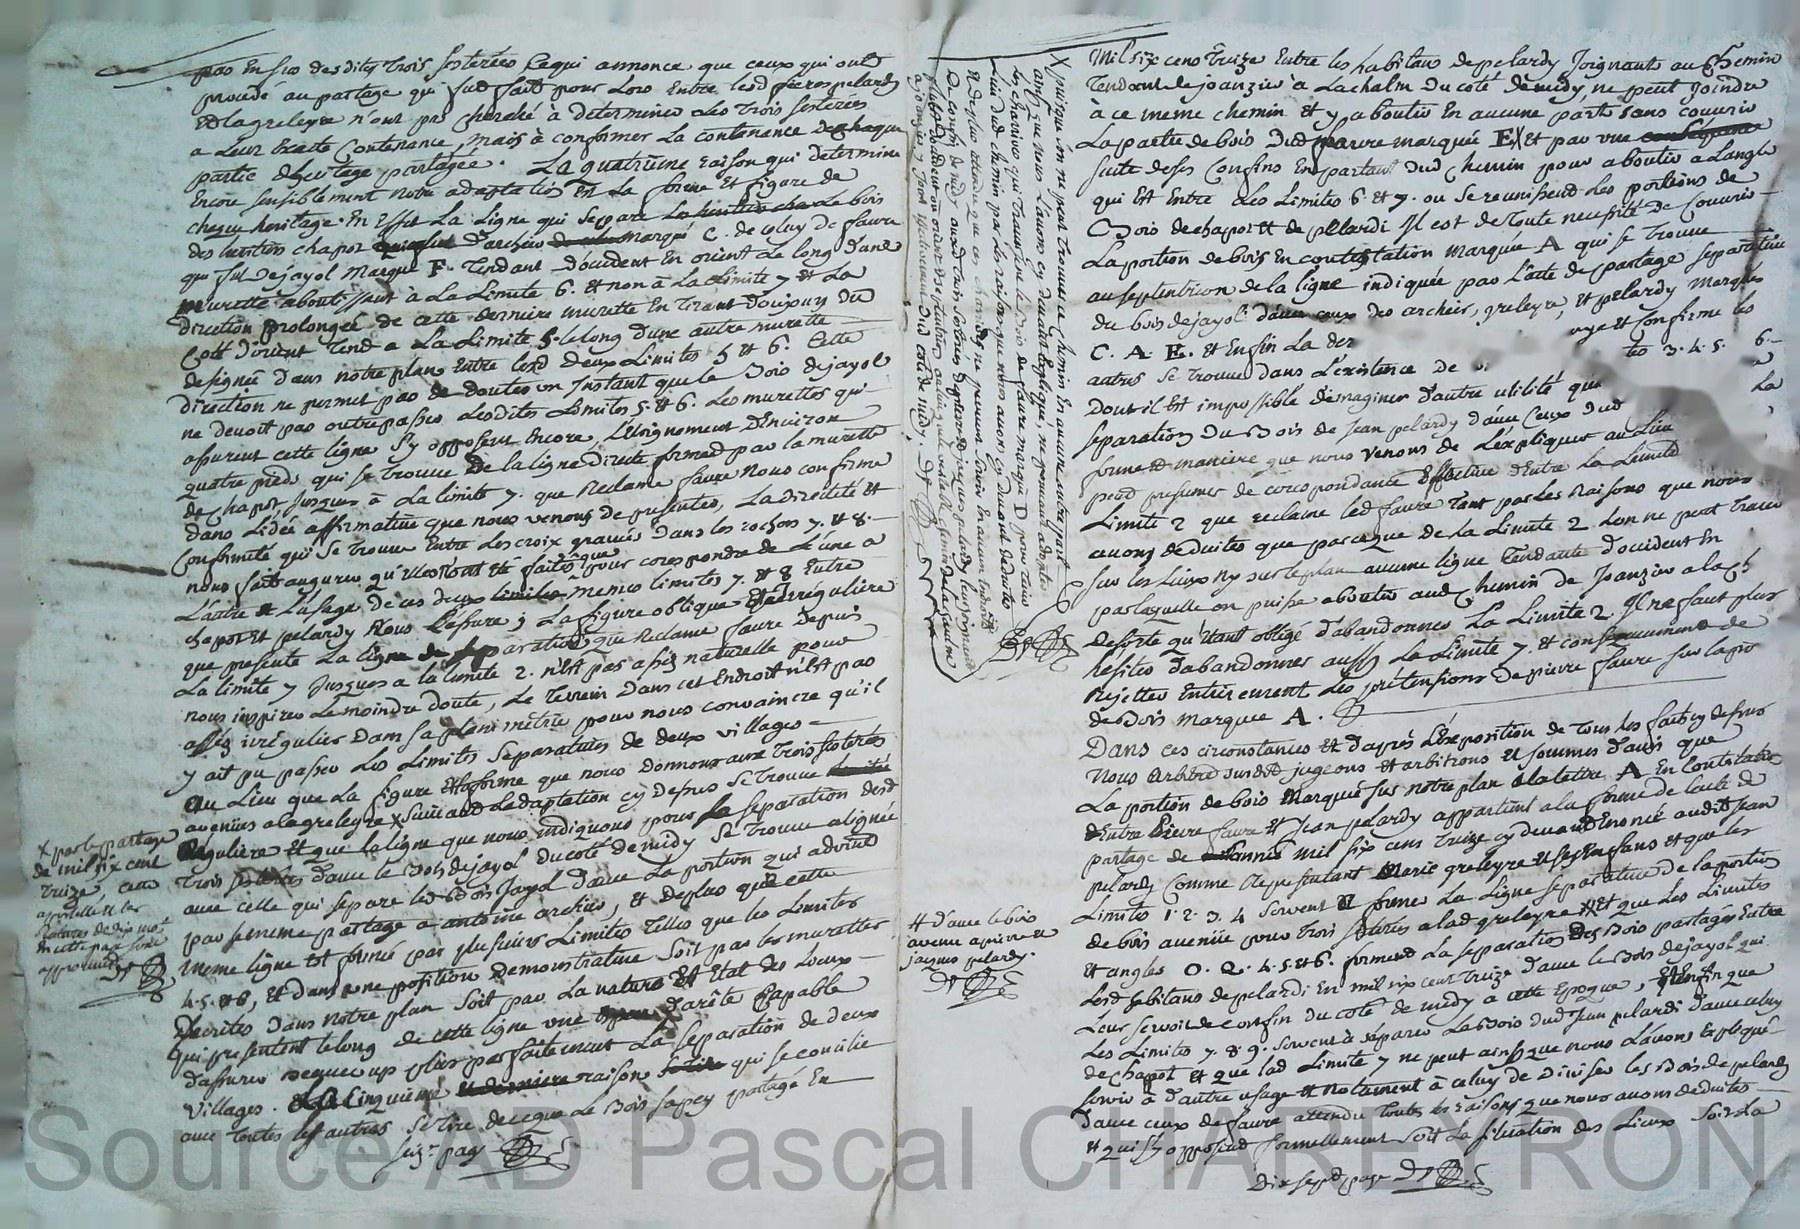 pas en sus desdites trois sesterées ce qui annonce que ceux qui ont
procédé au partage qui fut fait pour lors entre lesd freres pelardy
et la greleyre n'ont pas cherché à determiner les trois sesterées
a leur exacte contenance, mais à conformer la contenance de chaque
partie d'heritage partagée. La quatrieme raison qui determine
Encore sensiblement notre adaptation Est La forme Et figure de
chaque heritage. En Effet La Ligne qui separe le bois
des heritiers chapot d'archier marqué C. de celuy de faure
qui fut dejayol marqué F. Tendant d'occident En orient le long d'une
murette aboutissant à La Limite 6. et non à La Limite 7 et La
direction prolongée de cette derniere murette En tirant toujours du
Coté d'orient Tend a La Limite 5. le long d'une autre murette
designée dans notre plan Entre lesd deux Limites 5 et 6. Cette
direction ne permet pas de douter un Instant que le Bois dejayol
ne devoit pas outrepasser Lesdites Limites 5. et 6. Les murettes qui
assurent cette ligne s'y opposent Encore, L'Eloignement d'Environ
quatre pieds qui se trouve de la ligne directe formée par la murette
de chapot, jusques à La limite 7. que Reclame faure Nous confirme
dans L'idée affirmative que nous venons de presenter, La directité et
Conformité qui se trouve Entre Les croix gravées dans les rochers 7. et 8.
nous fait augurer qu'Elles n'ont été faites que pour corespondre de L'une a
L'autre et L'usage de ces deux memes limites 7. et 8 Entre
chapot et pelardy Nous L'assure; La figure oblique et irréguliere
que presente La ligne de separation que Reclame faure depuis
La limite 7 Jusques a la limite 2. n'Est pas assez naturelle pour
nous inspirer Le moindre doute, Le Terrein dans cet Endroit n'Est pas
assés irrégulier dans sa planimetrie pour nous convaincre qu'il
y ait pu passer Les Limites Separatives de deux villages
au Lieu que La figure et forme que nous donnons aux Trois sesterées
avenües a la greleyre X suivant L'adaptation cy dessus se trouve
Réguliere et que la ligne que nous indiquons pour la separation desd
Trois sesterées d'avec le Bois dejayol du coté de midy se trouve alignée
avec celle qui separe led Bois Jayol d'avec La portion qui advint
par le meme partage a antoine archier, et de plus que cette
meme ligne Est formée par plusieurs Limites Telles que les Limites
4. 5. et 6, Et dans une position demonstrative soit par les murettes
decrites dans notre plan soit par La nature Et Etat des Lieux
qui presentent le long de cette ligne une X d'arête Capable
d'assurer encore plus parfaitement La separation de deux
villages. La Cinquieme raison qui se concilie
avec Toutes les autres se tire de ce que Le Bois sapey partagé En
seize page
X par le partage
de mil six cent
Treize, cette
apostille et les
ratures de dix mots
en cette page sont
approuvées
X puisque l'on ne peut trouver ce Chemin En aucune autre part
ainsi que nous L'avons cy devant Expliqué, ne pouvant adopter
les Charrieres qui traversent le Bois de faure marqué D pour tenir
lieu dud chemin par Les raisons que nous avons cy devant deduites
Et de plus attendu que ces ne peuvent servir En aucun endroit
De confin de midy aux Trois sesterées de pierre et jaques pelardy Les joignant
# d'avec le bois
avenu a pierre et
jaques pelardy.
Mil six cens Treize Entre les habitans de pelardy Joignant au Chemin
Tendant de joanzier à Lachalm du coté de midy, ne peut Joindre
à ce meme chemin Et y aboutir En aucune part sans couvrir
La partie de bois dud faure marqué E X et par une
suite de ses Confins En partant dud Chemin pour aboutir a L'angle
qui Est Entre Les Limites 6 et 7. ou se reunissent Les portions de
Bois de chapot et de pelardi. Il est de Toute necessité de Couvrir
La portion de bois En contestation marquée A qui se trouve
au septentrion de la ligne indiquée par L'acte de partage separative
du bois dejayol d'avec ceux des archier, greleyre, et pelardy Marqués
C. A. E. et Enfin La der et Confirme les
autres se trouve dans L'existence de 3. 4. 5. 6.
Dont il Est impossible d'imaginer d'autre utilité que La
separation du Bois de Jean pelardy d'avec Ceux dud
forme et maniere que nous venons de L'expliquer au Lieu
peut presumer de corespondance Effective d'Entre La Limite
Limite 2 que reclame led faure tant par Les Raisons que nous
avons deduites que parceque de La Limite 2 L'on ne peut tracer
sur les Lieux ny sur le plan aucune ligne Tendante d'occident En
par laquelle on puisse aboutir aud Chemin de Joanzier a lach
desorte qu'Etant obligé d'abandonner La Limite 2. Il ne faut plus
hésiter d'abandonner aussy La Limite 7. et consequemment de
Rejetter Entierement Les prétensions de pierre faure sur la por
de Bois marquée A.
Dans ces circonstances et d'après L'Exposition de Tous les faits cy dessus
Nous Arbitres susdit jugeons et arbitrons et sommes d'avis que
La portion de bois marquée sur notre plan a la lettre A En Contestation
d'Entre Pierre faure et Jean pelardy appartient a la forme de l'acte de
partage de mil six cens Treize cy devant Enoncé audit Jean
pelardy Comme Representant Marie greleyre et ses Enfans et que les
Limites 1. 2. 3. 4 servent a former La Ligne separative de la portion
de bois avenüe pour Trois sesterées a lad greleyre # Et que Les Limites
et angles O. Q. 4. 5. et 6. forment La separation des Bois partagés Entre
Lesd habitans de pelardi En mil six cent treize d'avec Le Bois dejayol qui
Leur servoit de confin du coté de midy a cette Epoque, et Enfin que
Les Limites 7. 8. 9. servent à séparer Le Bois dud Jean pelardi d'avec celuy
de chapot Et que lad Limite 7 ne peut ainsy que nous L'avons Expliqué
servir à d'autre usage et Notament à celuy de Diviser les Bois de pelardy
d'avec ceux de faure attendu Toutes les raisons que nous avons deduites
et qui s'y opposent formellement soit La situation des Lieux soit La
Dix sept page
Source AD Pascal CHAREYRON